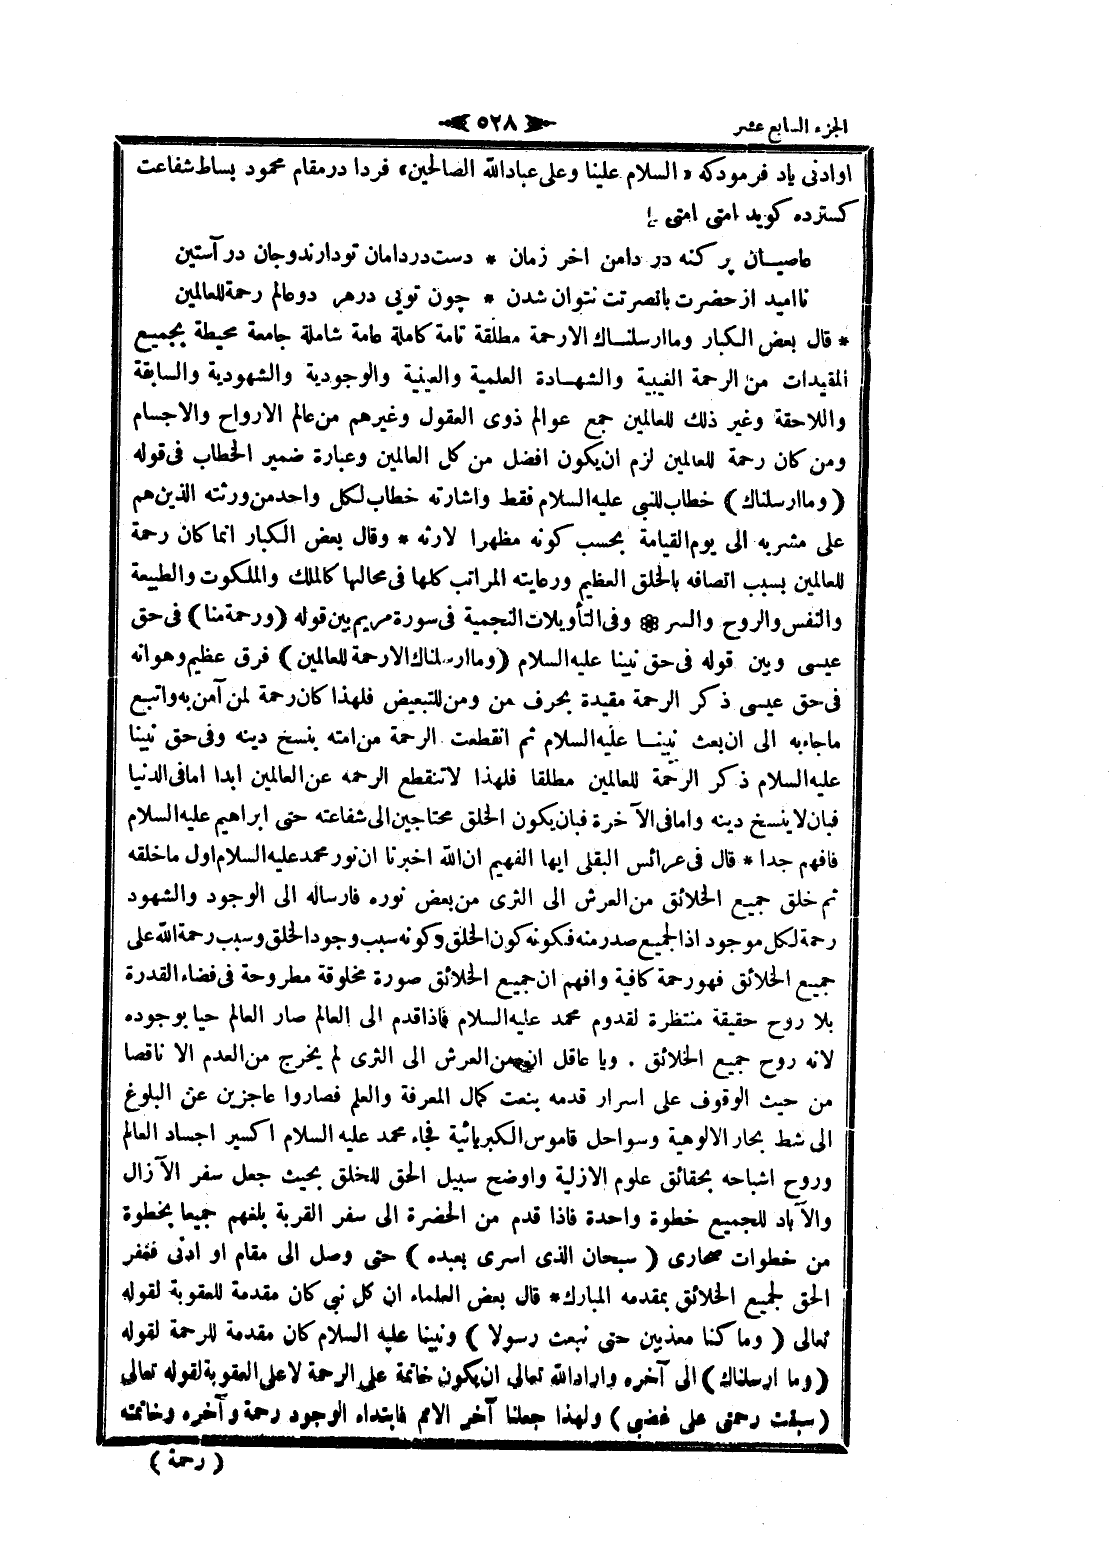 الجزء السابع عشر
٥٢٨
اوادنى ياد فرمودكه «السلام علينا وعلى عبادالله الصالحين» فردا درمقام محمود بساط شفاعت
كسترده كويد امتى امتى
عاصيان پر كنه در دامن اخر زمان * دست دردامان تودارندوجان در آستين
نااميد از حضرت بانصرتت نتوان شدن * چون تويى درهر دوعالم رحمة للعالمين
* قال بعض الكبار وماارسلناك الارحمة مطلقة تامة كاملة عامة شاملة جامعة محيطة بجميع
المقيدات من الرحمة الغيبية والشهادة العلمية والعينية والوجودية والشهودية والسابقة
واللاحقة وغير ذلك للعالمين جمع عوالم ذوى العقول وغيرهم من عالم الارواح والاجسام
ومن كان رحمة للعالمين لزم ان يكون افضل من كل العالمين وعبارة ضمير الخطاب فى قوله
(وماارسلناك) خطاب للنبى عليه السلام فقط واشارته خطاب لكل واحد من ورثته الذين هم
على مشربه الى يوم القيامة بحسب كونه مظهرا لارثه * وقال بعض الكبار انما كان رحمة
للعالمين بسبب اتصافه بالخلق العظيم ورعايته المراتب كلها فى محالها كالملك والملكوت والطبيعة
والنفس والروح والسر * وفى التأويلات النجمية فى سورة مريم بين قوله (ورحمة منا) فى حق
عيسى وبين قوله فى حق نبينا عليه السلام (وماارسلناك الارحمة للعالمين) فرق عظيم وهو انه
فى حق عيسى ذكر الرحمة مقيدة بحرف من ومن للتبعيض فلهذا كان رحمة لمن آمن به واتبع
ماجاءبه الى ان بعث نبينا عليه السلام ثم انقطعت الرحمة من امته بنسخ دينه وفى حق نبينا
عليه السلام ذكر الرحمة للعالمين مطلقا فلهذا لاتنقطع الرحمه عن العالمين ابدا امافى الدنيا
فبان لاينسخ دينه وامافى الآخرة فبان يكون الخلق محتاجين الى شفاعته حتى ابراهيم عليه السلام
فافهم جدا * قال فى عرائس البقلى ايها الفهيم ان الله اخبرنا ان نور محمد عليه السلام اول ماخلقه
ثم خلق جميع الخلائق من العرش الى الثرى من بعض نوره فارساله الى الوجود والشهود
رحمة لكل موجود اذ الجميع صدر منه فكونه كون الخلق وكونه سبب وجود الخلق وسبب رحمة الله على
جميع الخلائق فهو رحمة كافية وافهم ان جميع الخلائق صورة مخلوقة مطروحة فى فضاء القدرة
بلا روح حقيقة منتظرة لقدوم محمد عليه السلام فاذاقدم الى العالم صار العالم حيا بوجوده
لانه روح جميع الخلائق . ويا عاقل ان من العرش الى الثرى لم يخرج من العدم الا ناقصا
من حيث الوقوف على اسرار قدمه بنعت كمال المعرفة والعلم فصاروا عاجزين عن البلوغ
الى شط بحار الالوهية وسواحل قاموس الكبريائية فجاء محمد عليه السلام اكسير اجساد العالم
وروح اشباحه بحقائق علوم الازلية واوضح سبيل الحق للخلق بحيث جعل سفر الآزال
والآباد للجميع خطوة واحدة فاذا قدم من الحضرة الى سفر القربة بلغهم جميعا بخطوة
من خطوات صحارى (سبحان الذى اسرى بعبده) حتى وصل الى مقام او ادنى فغفر
الحق لجميع الخلائق بمقدمه المبارك * قال بعض العلماء ان كل نبى كان مقدمة للعقوبة لقوله
تعالى (وماكنا معذبين حتى نبعث رسولا) ونبينا عليه السلام كان مقدمة للرحمة لقوله
(وما ارسلناك) الى آخره وارادالله تعالى ان يكون خاتمة على الرحمة لاعلى العقوبة لقوله تعالى
(سبقت رحمتى على غضبى) ولهذا جعلنا آخر الامم فابتداء الوجود رحمة وآخره وخاتمته
(رحمة)